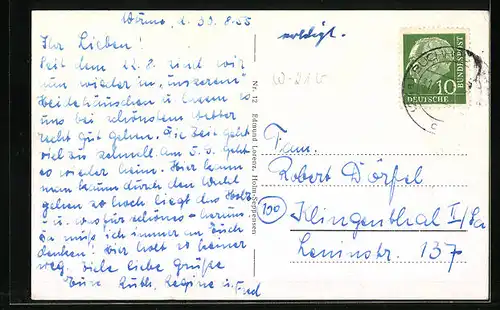 d. 30.8.55
Ihr Lieben!
Seit dem 22.8. sind wir
nun wieder in "unserem"
Heidehäuschen u. lassen es
uns bei schönstem Wetter
recht gut gehen. Die Zeit geht
viel zu schnell. Am 5.9. geht
es wieder heim. Hier kann
man kaum durch den Wald
gehen so hoch liegt das Holz
u. was für schönes - herum
Da muß ich immer an Euch
denken! Hier holt es keiner
weg. Viele liebe Grüße
Eure Ruth, Regine u. Fred
erledigt.
W-21b
Nr. 12 Edmund Lorenz, Holm-Seppensen
DEUTSCHE BUNDESPOST
10
Fam.
Robert Dörfel
(10b) Klingenthal I/Sa
Leninstr. 137